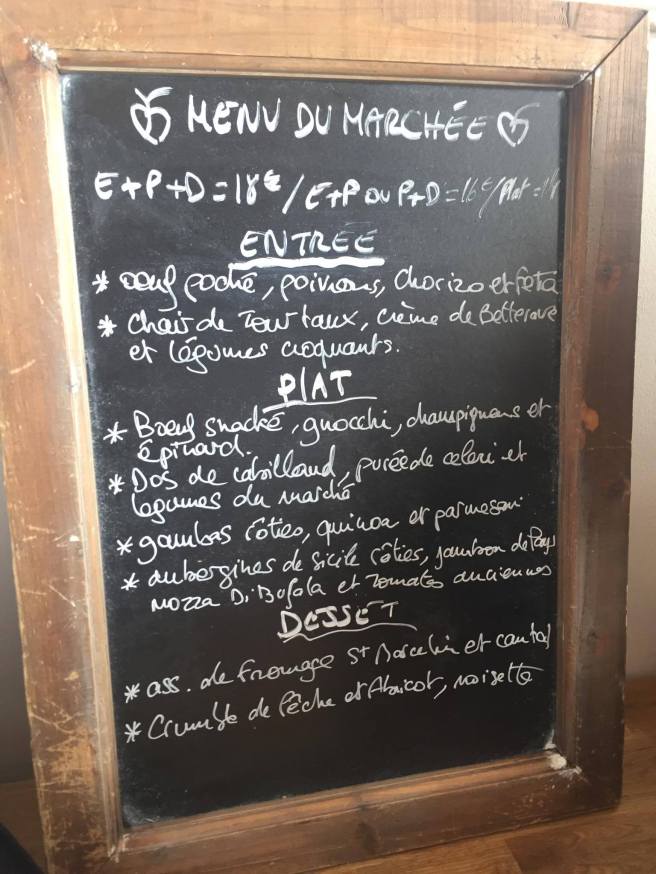 MENU DU MARCHÉE
E+P+D=18€/E+P OU P+D=16€/Plat=14
ENTRÉE
* oeuf poché, poivrons, chorizo et feta
* chair de Tourtaux, crème de Betterave
et légumes croquants.
PlAT
* Boeuf snacké, gnocchi, champignons et
épinard.
* Dos de cabillaud, purée de celeri et
légumes du marché
* gambas rôties, quinoa et parmesan
* aubergines de sicile rôties, jambon de Pays
mozza Di Bufala et Tomates anciennes
DESSET
* ass. de fromage St Marcelin et cantal
* Crumble de Pêche et Abricot, noisette